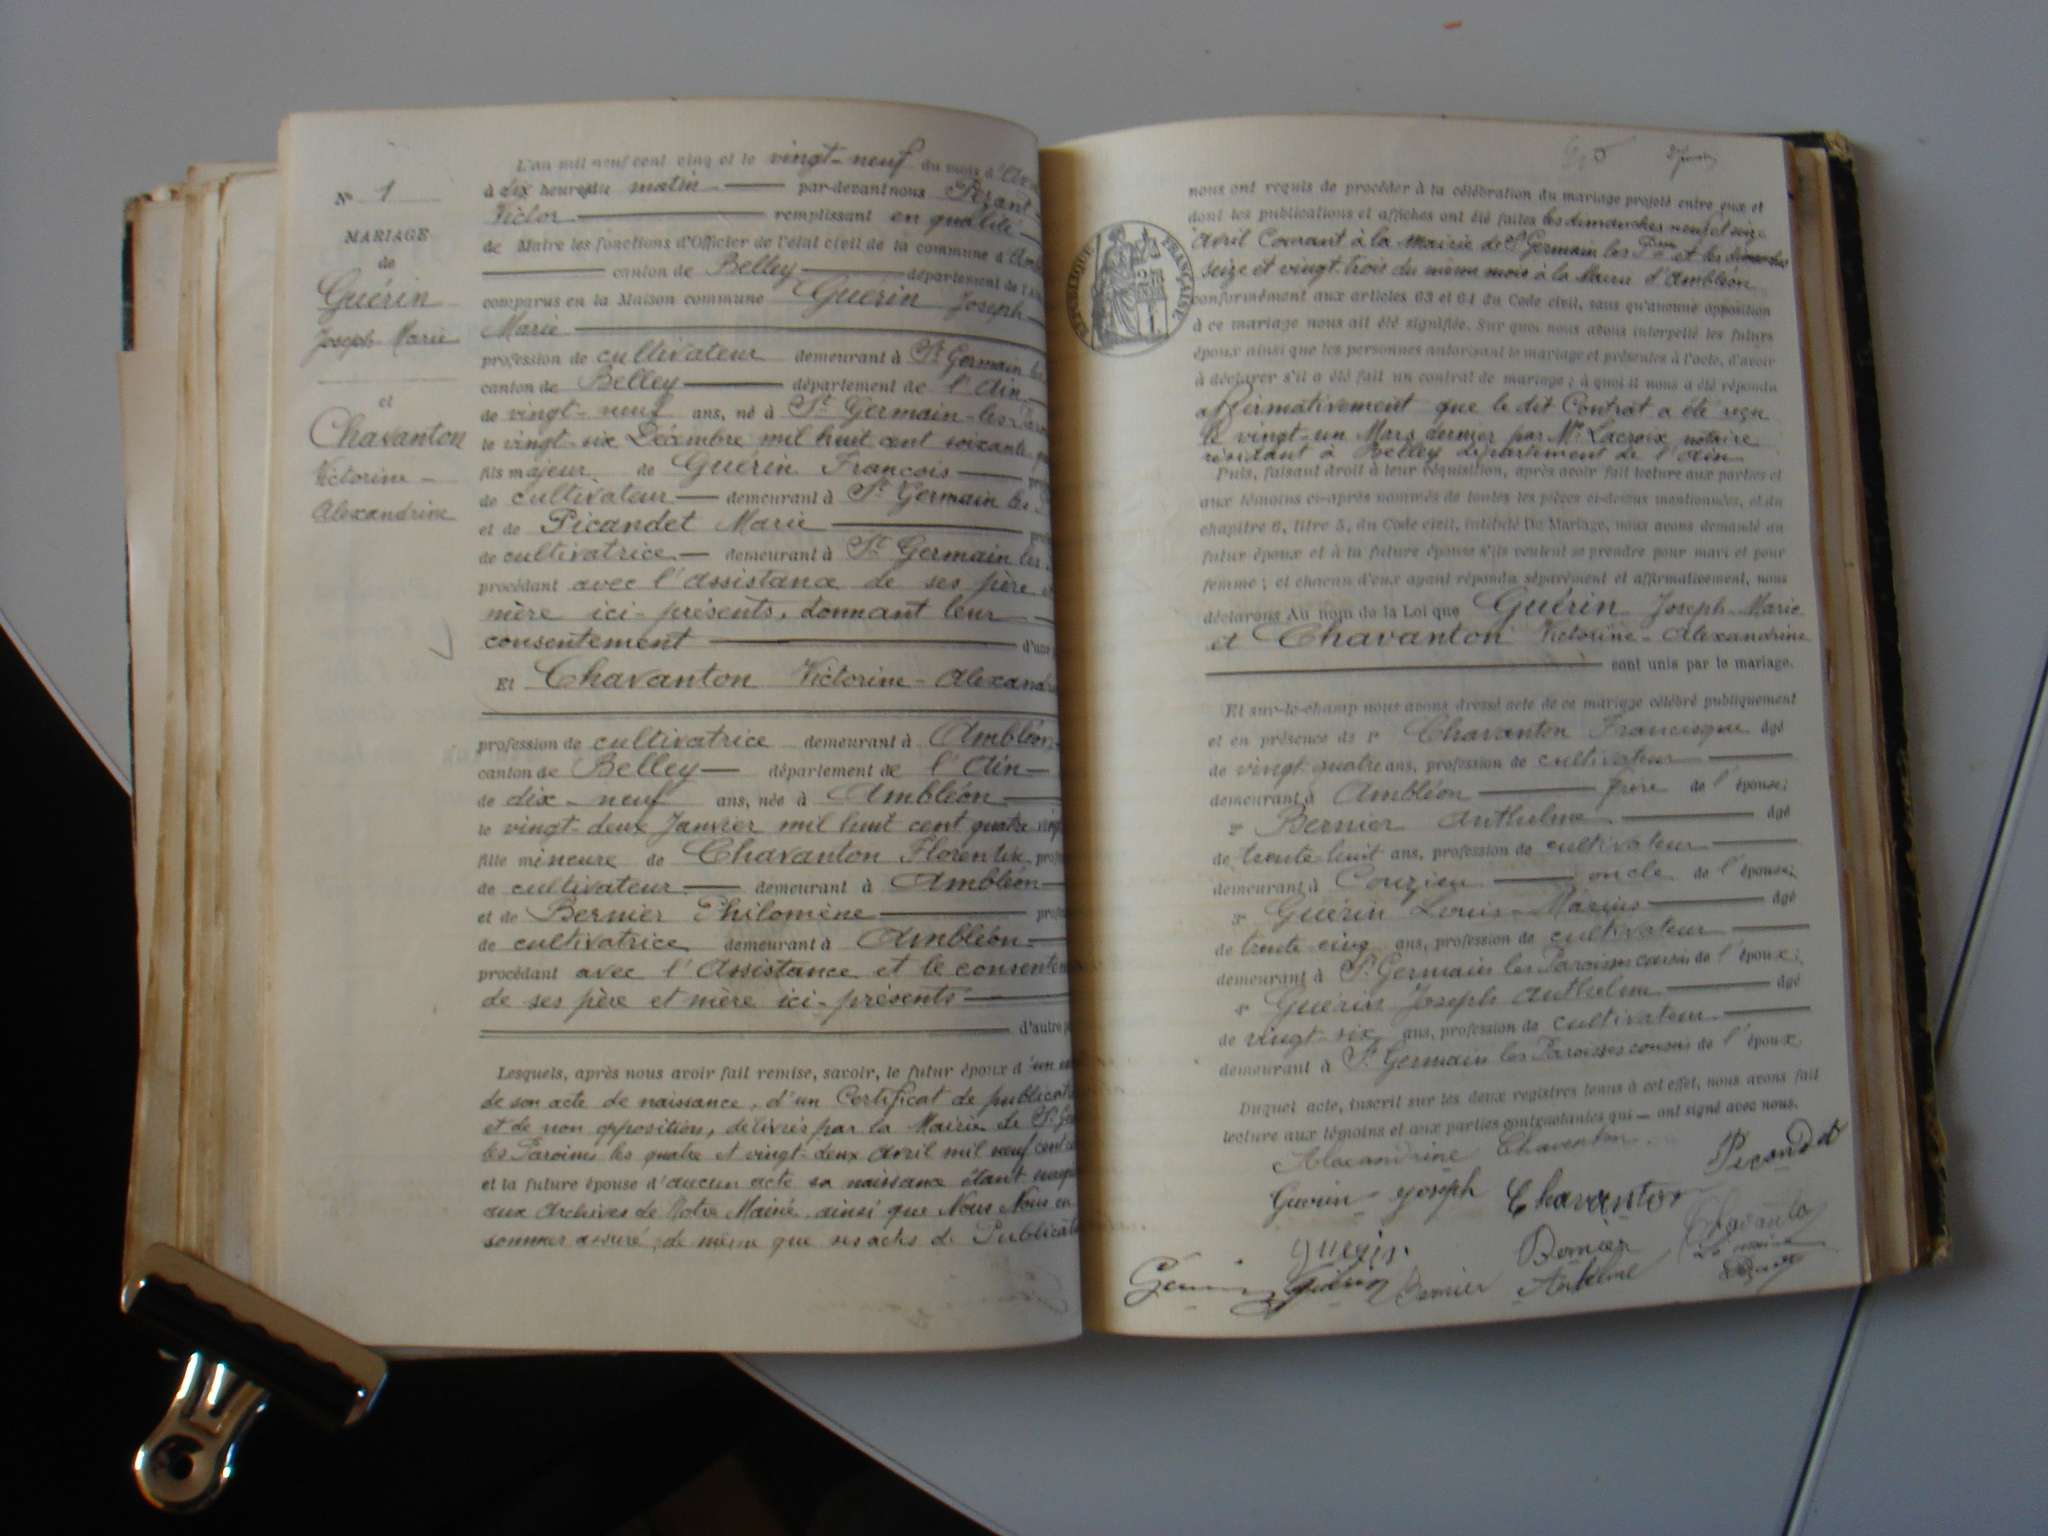 N° 1
MARIAGE
de
Guérin
Joseph Marie
et
Chavanton
Victorine -
Alexandrine
L'an mil neuf cent cinq et le vingt-neuf du mois d'
à dix heures du matin par-devant nous Pérant
Victor remplissant en qualité
de Maire les fonctions d'Officier de l'état civil de la commune d'Am
canton de Belley département de l'Ain
comparus en la Maison commune Guérin Joseph
Marie
profession de cultivateur demeurant à St Germain les
canton de Belley département de l'Ain
de vingt-neuf ans, né à St Germain-les-Paroi
le vingt-six Décembre mil huit cent soixante
fils majeur de Guérin François
de cultivateur demeurant à St Germain les
et de Picandet Marie
de cultivatrice demeurant à St Germain les
procédant avec l'assistance de ses père
mère ici-présents, donnant leur
consentement d'une
Et Chavanton Victorine-Alexand
profession de cultivatrice demeurant à Ambléon
canton de Belley département de l'Ain
de dix-neuf ans, née à Ambléon
le vingt-deux Janvier mil huit cent quatre ving
fille mineure de Chavanton Florentin
de cultivateur demeurant à Ambléon
et de Bernier Philomène
de cultivatrice demeurant à Ambléon
procédant avec l'Assistance et le consentem
de ses père et mère ici-présents
d'autre
Lesquels, après nous avoir fait remise, savoir, le futur époux d'un
de son acte de naissance, d'un Certificat de publicat
et de non opposition, délivrés par la Mairie de St Ge
les Paroisses les quatre et vingt-deux avril mil neuf cent
et la future épouse d'aucun acte sa naissance étant
aux archives de Notre Mairie, ainsi que Nous Nous en
sommes assuré, de même que ses actes de Publicat
RÉPUBLIQUE FRANÇAISE
nous ont requis de procéder à la célébration du mariage projeté entre eux et
dont les publications et affiches ont été faites les dimanches neuf et seize
avril Courant à la Mairie de St Germain les et les dimanches
seize et vingt-trois du même mois à la Mairie d'Ambléon
conformément aux articles 63 et 64 du Code civil, sans qu'aucune opposition
à ce mariage nous ait été signifiée. Sur quoi nous avons interpellé les futurs
époux ainsi que les personnes autorisant le mariage et présentes à l'acte, d'avoir
à déclarer s'il a été fait un contrat de mariage ; à quoi il nous a été répondu
affirmativement que le dit Contrat a été reçu
le vingt-un Mars dernier par Me Lacroix notaire
résidant à Belley département de l'Ain
Puis, faisant droit à leur réquisition, après avoir fait lecture aux parties et
aux témoins ci-après nommés de toutes les pièces ci-dessus mentionnées, et du
chapitre 6, titre 5, du Code civil, intitulé Du Mariage, nous avons demandé au
futur époux et à la future épouse s'ils veulent se prendre pour mari et pour
femme ; et chacun d'eux ayant répondu séparément et affirmativement, nous
déclarons Au nom de la Loi que Guérin Joseph Marie
et Chavanton Victorine-Alexandrine
sont unis par le mariage.
Et sur-le-champ nous avons dressé acte de ce mariage célébré publiquement
et en présence de 1° Chavanton Francisque âgé
de vingt quatre ans, profession de cultivateur
demeurant à Ambléon frère de l'épouse;
2° Bernier Anthelme âgé
de trente huit ans, profession de cultivateur
demeurant à Conzieu oncle de l'épouse;
3° Guérin Louis-Marius âgé
de trente cinq ans, profession de cultivateur
demeurant à St Germain les Paroisses cousin de l'époux;
4° Guérin Joseph Anthelme âgé
de vingt-six ans, profession de cultivateur
demeurant à St Germain les Paroisses cousin de l'époux
Duquel acte, inscrit sur les deux registres tenus à cet effet, nous avons fait
lecture aux témoins et aux parties contractantes qui ont signé avec nous.
Alexandrine Chavanton Picandet
Guérin Joseph Chavanton
Guérin Bernier
Guérin Bernier
Le maire